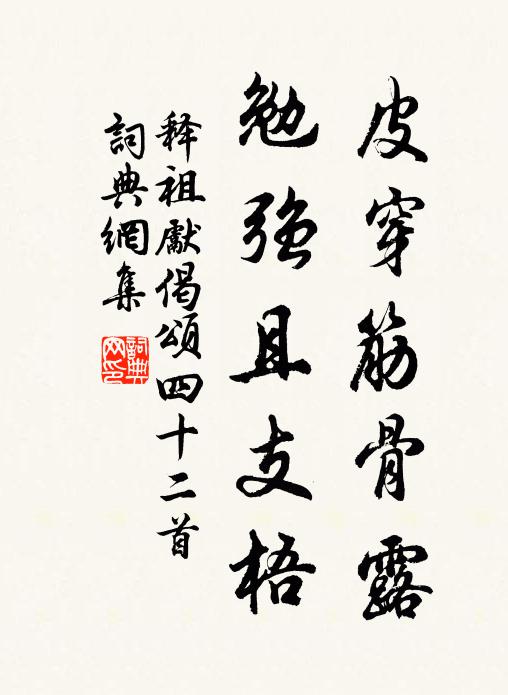 皮穿筋骨露
勉強且支梧
释祖獻偈頌四十二首
詞典網集
詞典網印